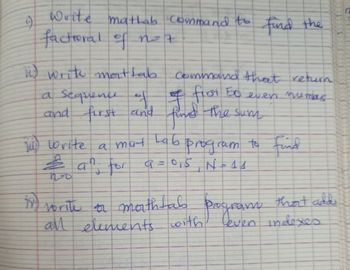 i) Write mathab command to find the
factoral of n=7.
ii) write matlab command that return
a sequence of first 50 even numbes
and first and find the sum
iii) write a mat lab program to find
N Σ n=0 aⁿ, for a = 0,5, N = 11
iv) write a mathlab program that adds
all elements with even indexes